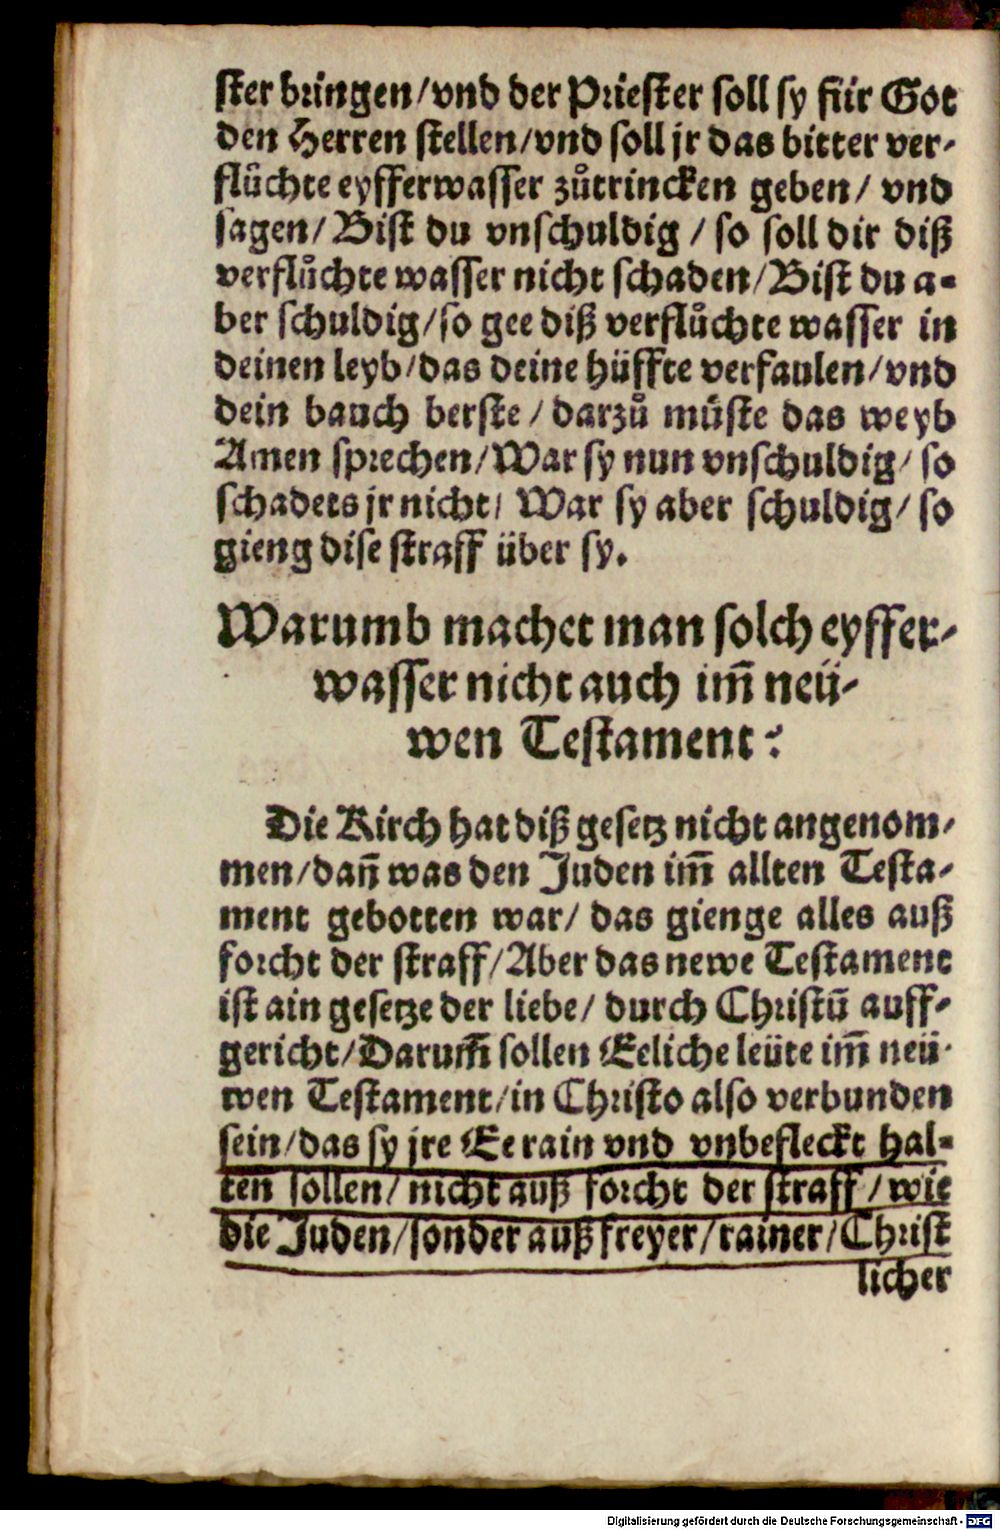 ſter bringen/vnd der Prieſter ſoll ſy für Got
den Herren ſtellen/vnd ſoll jr das bitter ver-
flůchte eyfferwaſſer zůtrincken geben/ vnd
ſagen/ Biſt du vnſchuldig / ſo ſoll dir diß
verflůchte waſſer nicht ſchaden/Biſt du a-
ber ſchuldig/ſo gee diß verflůchte waſſer in
deinen leyb/das deine hüffte verfaulen/vnd
dein bauch berſte / darzů můſte das weyb
Amen ſprechen/War ſy nun vnſchuldig/ ſo
ſchadets jr nicht/ War ſy aber ſchuldig/ ſo
gieng diſe ſtraff über ſy.
Warumb machet man ſolch eyffer-
waſſer nicht auch im̄ neü-
wen Teſtament?
Die Kirch hat diß geſetz nicht angenom-
men/dan̄ was den Juden im̄ allten Teſta-
ment gebotten war/ das gienge alles auß
forcht der ſtraff/Aber das newe Teſtament
iſt ain geſetze der liebe/ durch Chriſtū auff-
gericht/Darum̄ ſollen Eeliche leüte im̄ neü-
wen Teſtament/in Chriſto alſo verbunden
ſein/das ſy jre Ee rain vnd vnbefleckt hal-
ten ſollen/ nicht auß forcht der ſtraff / wie
die Juden/ſonder auß freyer/rainer/Chriſt
licher
Digitalisierung gefördert durch die Deutsche Forschungsgemeinschaft - DFG